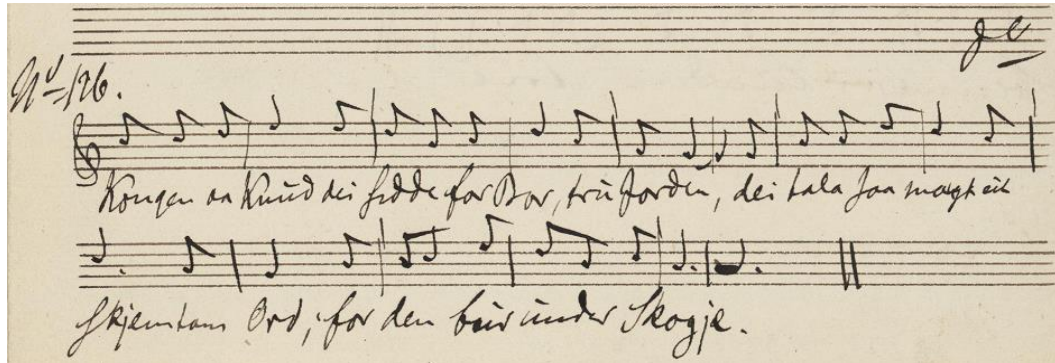 No 126.
Kongen aa Knud dei sidde for Bor, tru for den, dei tala saa mangt eit
skjemtans Ord, for den bur under Skogje.